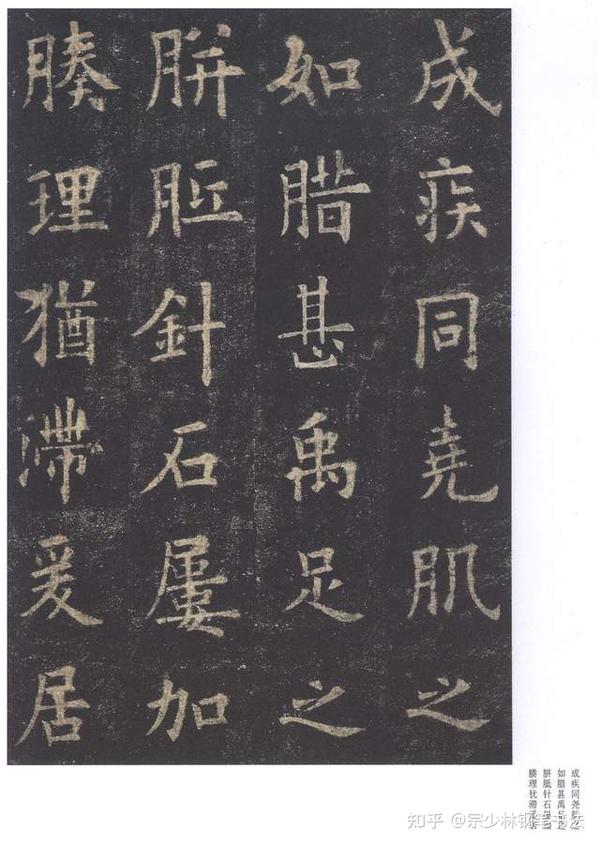 成疾同堯肌之
如腊甚禹足之
胼胝針石屢加
腠理猶滯爰居
成疾同尧肌之
如腊甚禹足之
胼胝针石屡加
腠理犹滞爰居
知乎 @宗少林钢笔书法